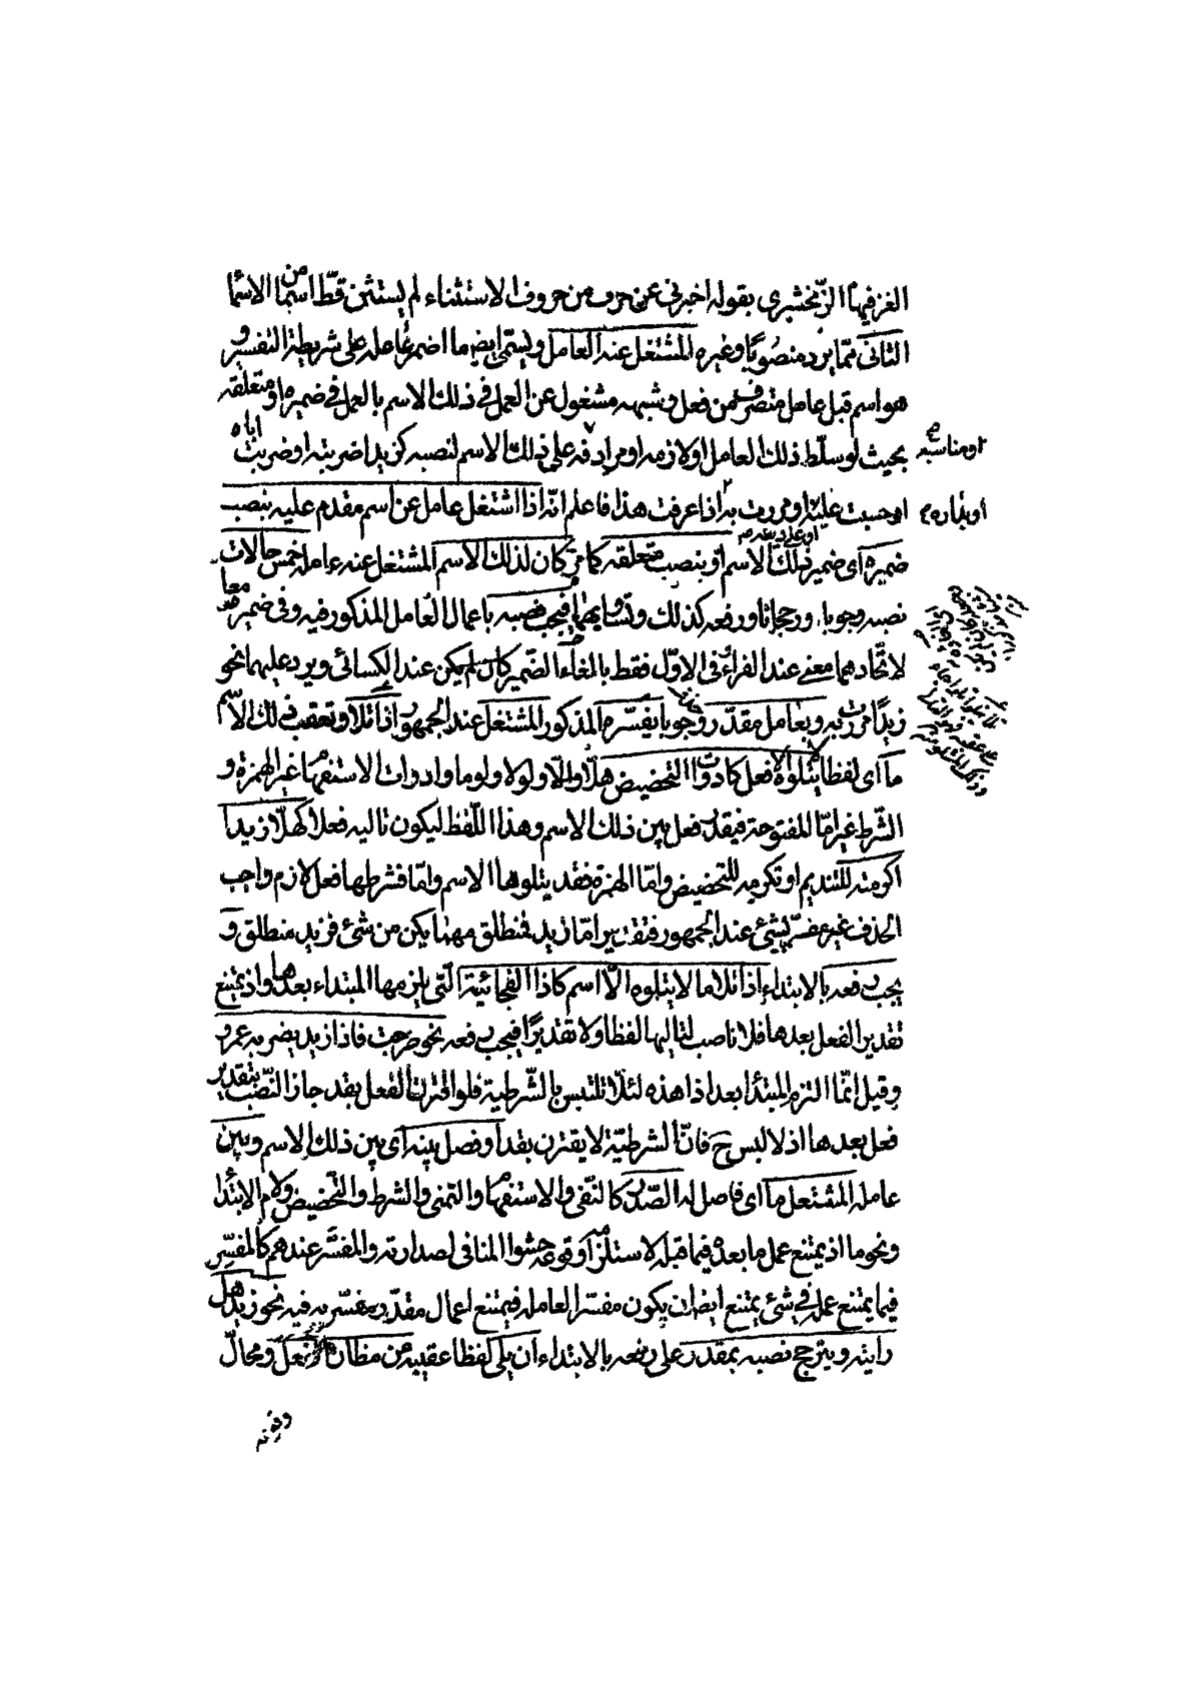 الغز فيها الزّمخشرى بقوله اخبرنى عن حرف من حروف الاستثناء لم يستثن قطّ اسما من الاسما
الثانى ممّا يرد منصوبًا وغيره المشتغل عنه العامل ويسمّى ايضا ما اضمر عامله على شريطة التفسير و
هو اسم قبل عامل متصرف من فعل وشبهه مشغول عن العمل فى ذلك الاسم بالعمل فى ضميره او متعلقه
بحيث لو سلّط ذلك العامل او لازمه او مرادفه على ذلك الاسم لنصبه كزيدا ضربته او ضربت اباه
او مناسبه صح
او حبست عليه او مررت به اذا عرفت هذا فاعلم انّه اذا اشتغل عامل عن اسم مقدم عليه بنصب
ضميره اى ضمير ذلك الاسم او بنصب متعلقه كما مرّ كان لذلك الاسم المشتغل عنه عامله خمس حالات
نصبه وجوبا ورجحانا ورفعه كذلك وتساويهما فيجب نصبه باعمال العامل المذكور فيه وفى ضميره معا
لاتّحادهما معنى عند الفراء وفى الاوّل فقط بالغاء الضمير كان لم يكن عند الكسائى ويرد عليهما نحو
زيدًا مررت به وبعامل مقدّر وجوبا يفسّره المذكور المشتغل عند الجمهور اذا تلا وتعقب ذلك الاسم
ما اى لفظا لا يتلوه الا فعل كادوات التحضيض هلّا والّا ولولا ولوما وادوات الاستفهام غير الهمزة و
الشّرط غير امّا المفتوحة فيقدر فعل بين ذلك الاسم وهذا اللّفظ ليكون تاليه فعلا كهلّا زيدا
اكرمته للتنديم او تكرمه للتحضيض وامّا الهمزة فقد يتلوها الاسم وامّا فشرطها فعل لازم واجب
الحذف غير مفسّر بشئ عند الجمهور فتقدير امّا زيد فمنطلق مهما يكن من شئ فزيد منطلق و
يجب رفعه بالابتداء اذا تلا ما لا يتلوه الّا اسم كاذا الفجائية الّتى يلزمها المبتداء بعدها واذ يمتنع
تقدير الفعل بعدها فلا ناصب لتاليها لفظا ولا تقديرًا فيجب رفعه نحو خرجت فاذا زيد يضربه عمرو
وقيل انّما التزم المبتدأ بعد اذا هذه لئلّا تلتبس بالشّرطية فلو اقترن الفعل بقد جاز النّصب بتقدير
فعل بعدها اذ لا لبس ح فانّ الشرطيّة لا يقترن بقد او فصل بينه اى بين ذلك الاسم وبين
عامله المشتغل ما اى فاصل له الصّدر كالنفى والاستفهام والتمنى والشرط والتحضيض ولام الابتدا
ونحوها اذ يمتنع عمل ما بعده فيما قبله لاستلزامه وقوعه حشوا المنافى لصدارته والمفسِّر عندهم كالمفسَّر
فيما يمتنع عمله فى شئ يمتنع ايضا ان يكون مفسّرا لعامله فيمتنع اعمال مقدّر مفسّر به فيه نحو زيد هل
رايته ويترجح نصبه بمقدر على رفعه بالابتداء ان يلى لفظا عقيبه من مظان الفعل ومحالّ